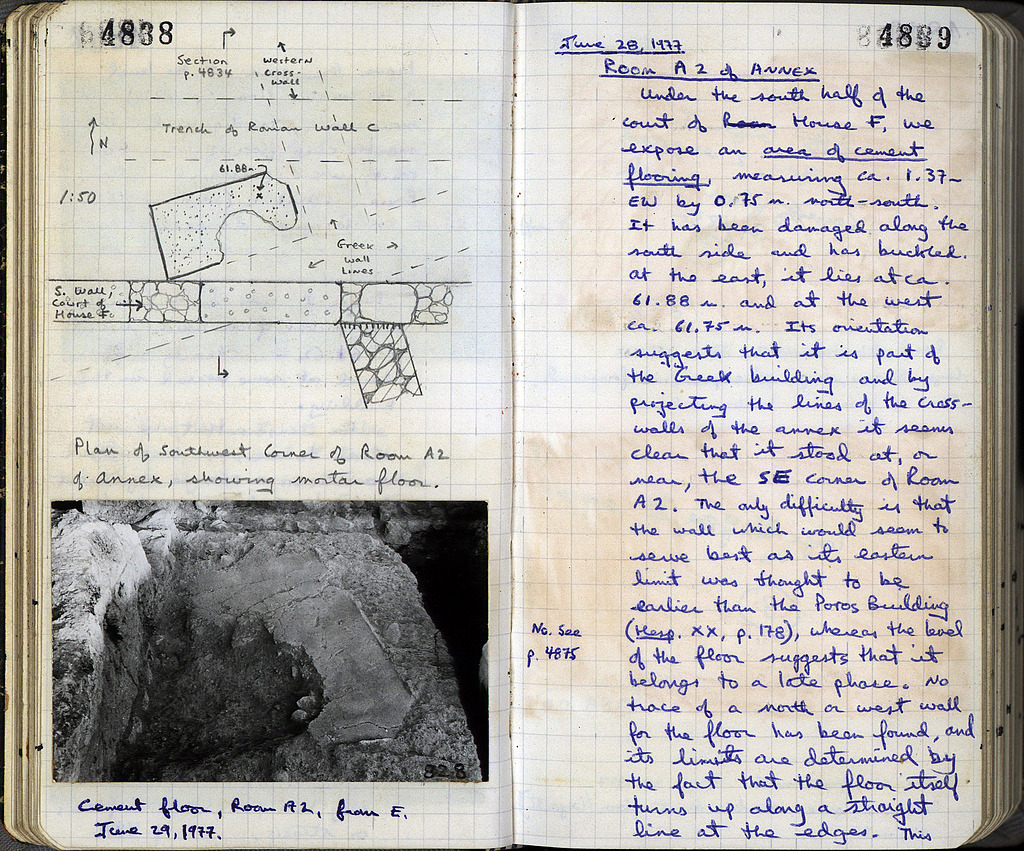 4838
Section
p. 4834
Western
Cross-
Wall
N
Trench of Roman Wall C
61.88m
1:50
Greek
Wall
Lines
S. Wall,
Court of
House F.
Plan of Southwest Corner of Room A2
of Annex, showing mortar floor.
828
Cement floor, Room A2, from E.
June 29, 1977.
4839
June 28, 1977
Room A2 of Annex
Under the south half of the
court of Room House F, we
expose an area of cement
flooring, measuring ca. 1.37-
EW by 0.75 m. north-south.
It has been damaged along the
south side and has buckled.
at the east, it lies at ca.
61.88 m. and at the west
ca. 61.75 m. Its orientation
suggests that it is part of
the Greek building and by
projecting the lines of the cross-
walls of the annex it seems
clear that it stood at, or
near, the SE corner of Room
A2. The only difficulty is that
the wall which would seem to
serve best as its eastern
limit was thought to be
earlier than the Poros Building
(Hesp. XX, p. 178), whereas the level
of the floor suggests that it
belongs to a late phase. No
trace of a north or west wall
for the floor has been found, and
its limits are determined by
the fact that the floor itself
turns up along a straight
line at the edges. This
No. See
p. 4875